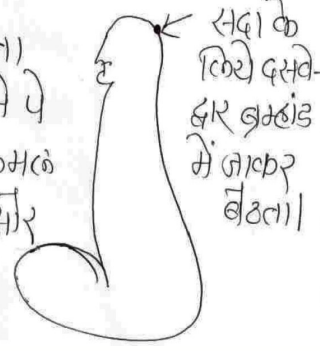 सदा के
लिये दसवे-
द्वार ब्रम्हांड
में जाकर
बैठता।